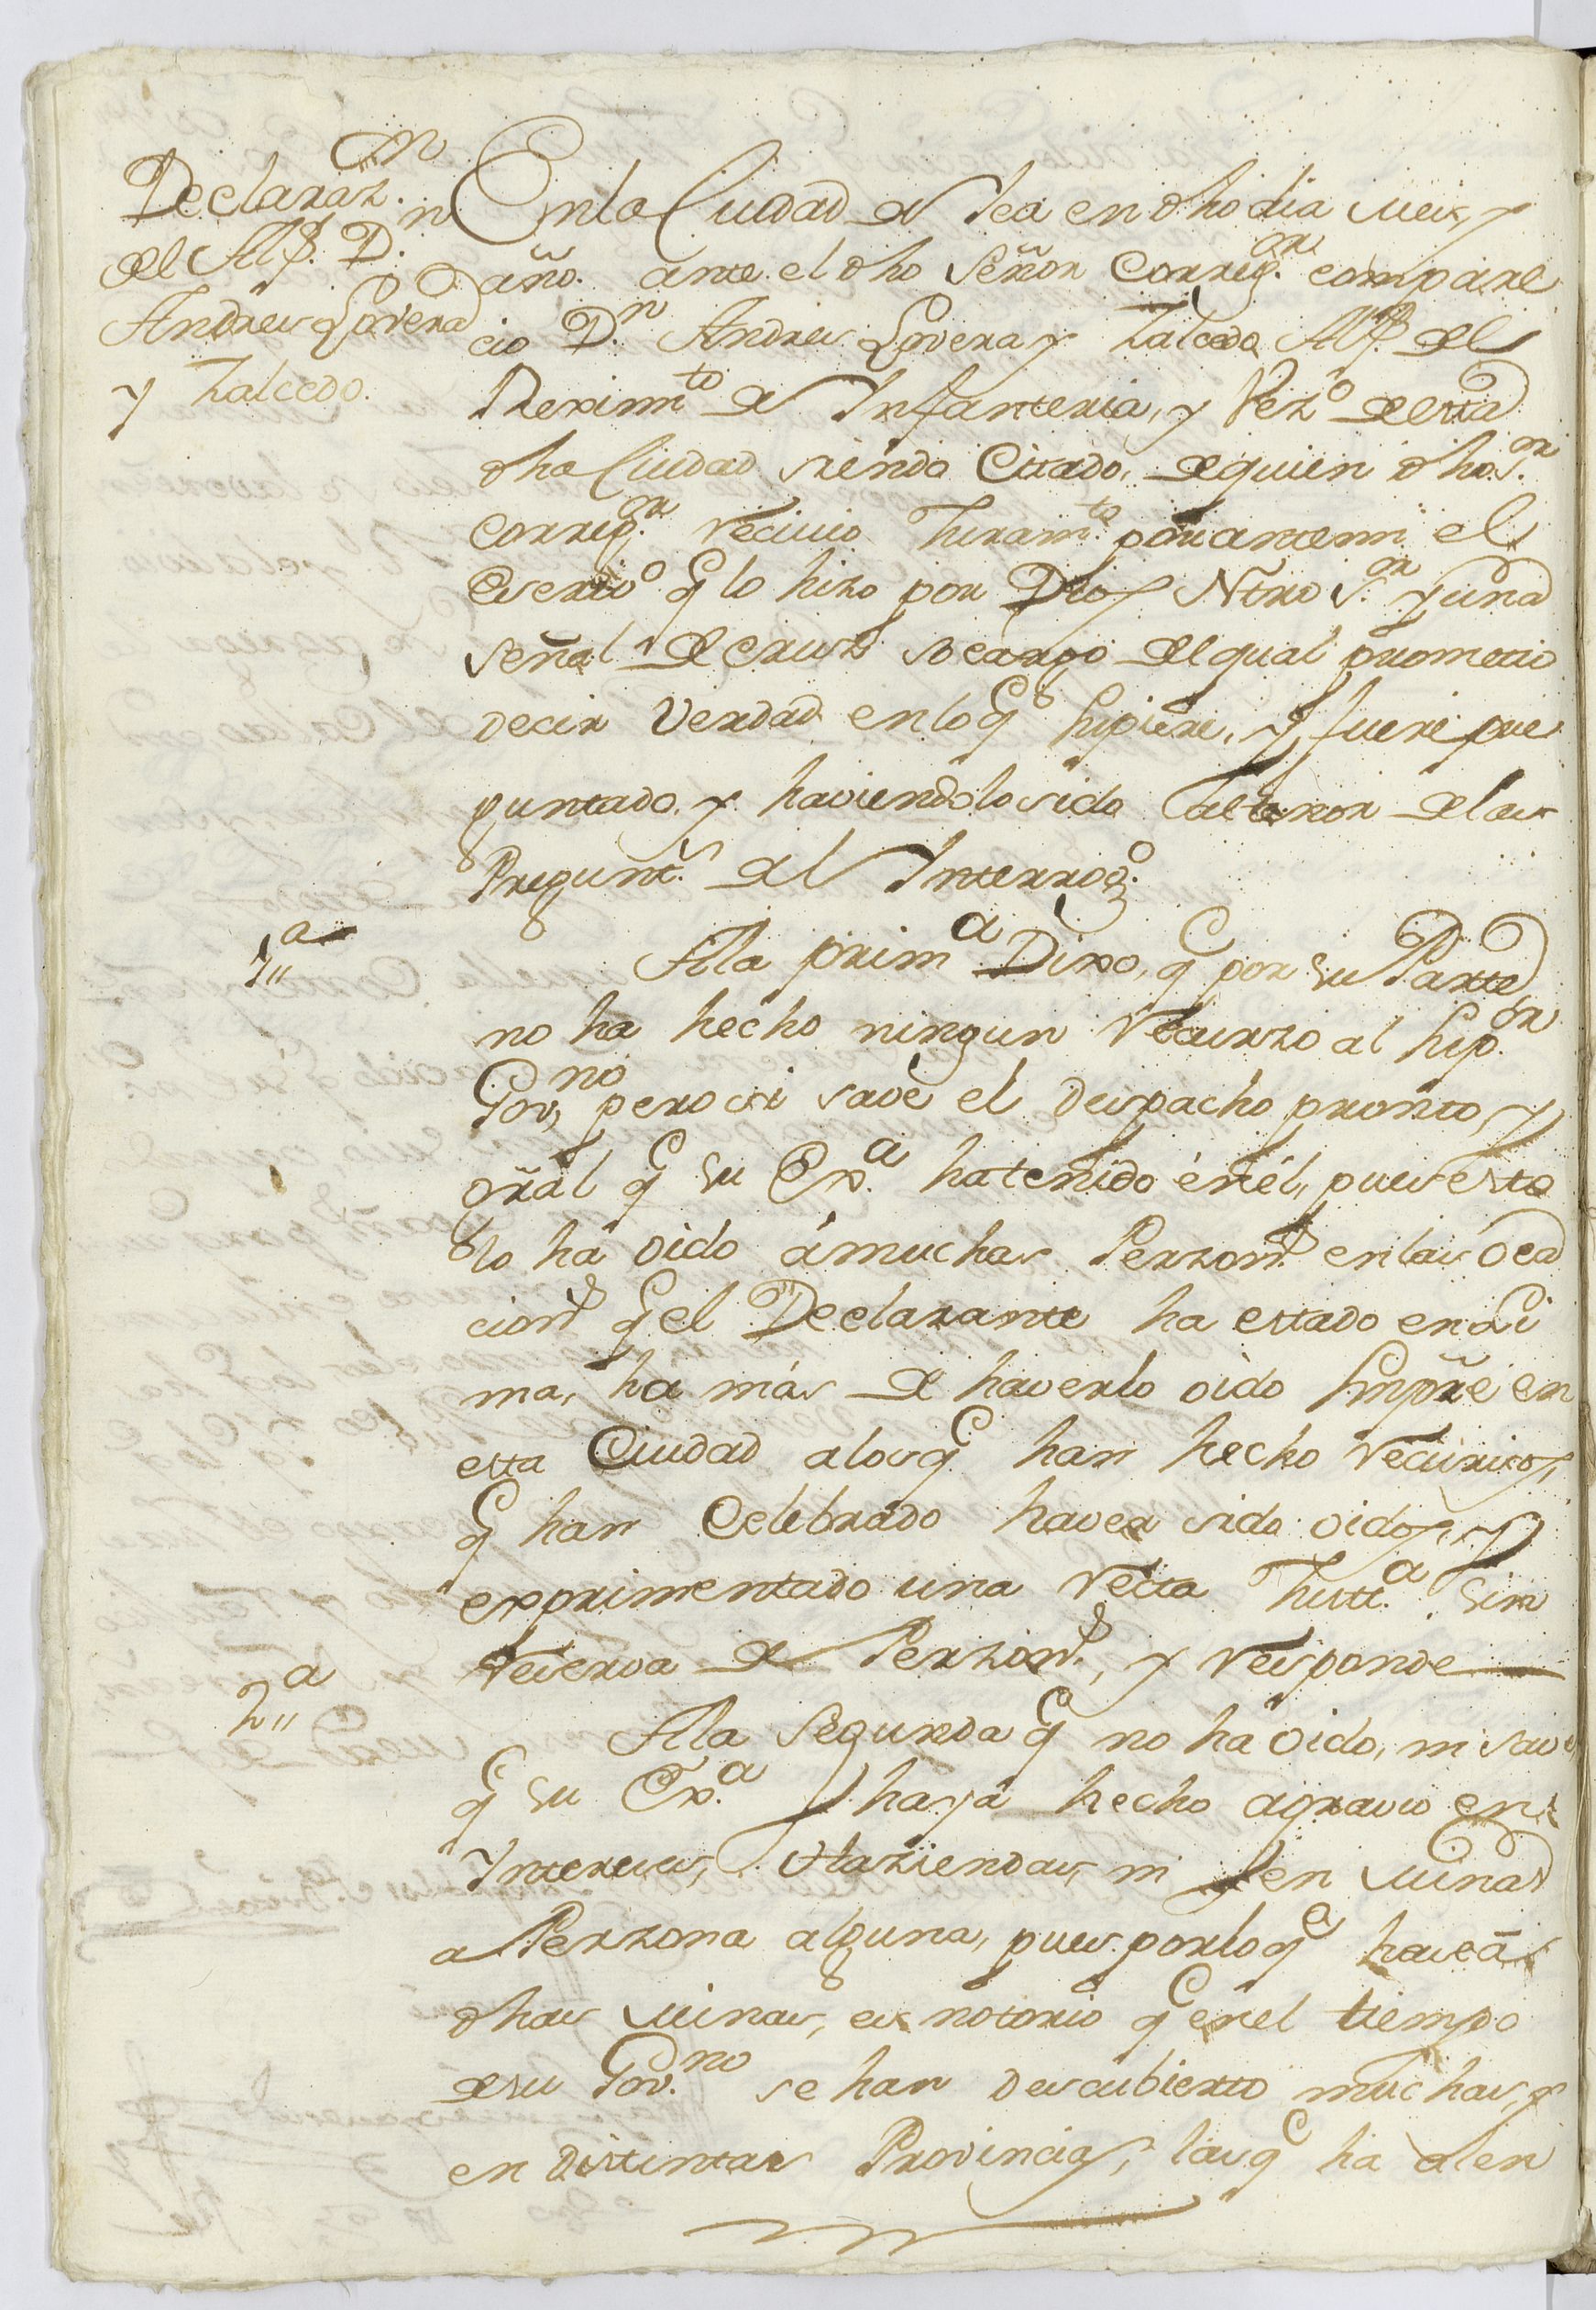 Declaraz.on
del Alf.z D.n
Andres Lovera
y Zalcedo.
En la Ciudad de Ica en dho dia mes, y
año. ante el dho Señor Correg.or compare
cio D.n Andres Lovera y Zalcedo Alf.z del
Reximto de Infanteria, y Vez.o de esta
dha Ciudad siendo Citado, de quien dho S.or
Correg.or recivio Juram.to por ante mi el
Escrivo q lo hizo por Dios Ntro S.or y una
señal de cruz so cargo del qual prometio
decir Verdad en lo q supiere, y fuere pre
guntado, y haviendolo sido al tenor de las
Pregunt.s del Interrog.o
1"a
A la prim.a Dixo, q por su Parte
no ha hecho ningun recurzo al Sup.or
Gov.no pero si save el despacho pronto, y
gral q su Ex.a ha tenido en él, pues esto
lo há oido á muchas Perzon.s en las oca
cion.s q el Declarante ha estado en Li
ma, ha más de haverlo oido Simpre en
esta Ciudad a los q han hecho recursos,
q han Celebrado haver sido oidos, y
exprimentado una recta Justt.a sin
reserva de Perzon.s, y responde
2"a
A la Segunda q no ha oido, ni save
q su Ex.a haya hecho agravio en
Intereses, Haziendas, ni en minas
a Perzona alguna, pues por lo q hace á
dhas minas, es notorio q en el tiempo
de su Gov.no se han descubierto muchas, y
en distintas Provincias, las q ha alen